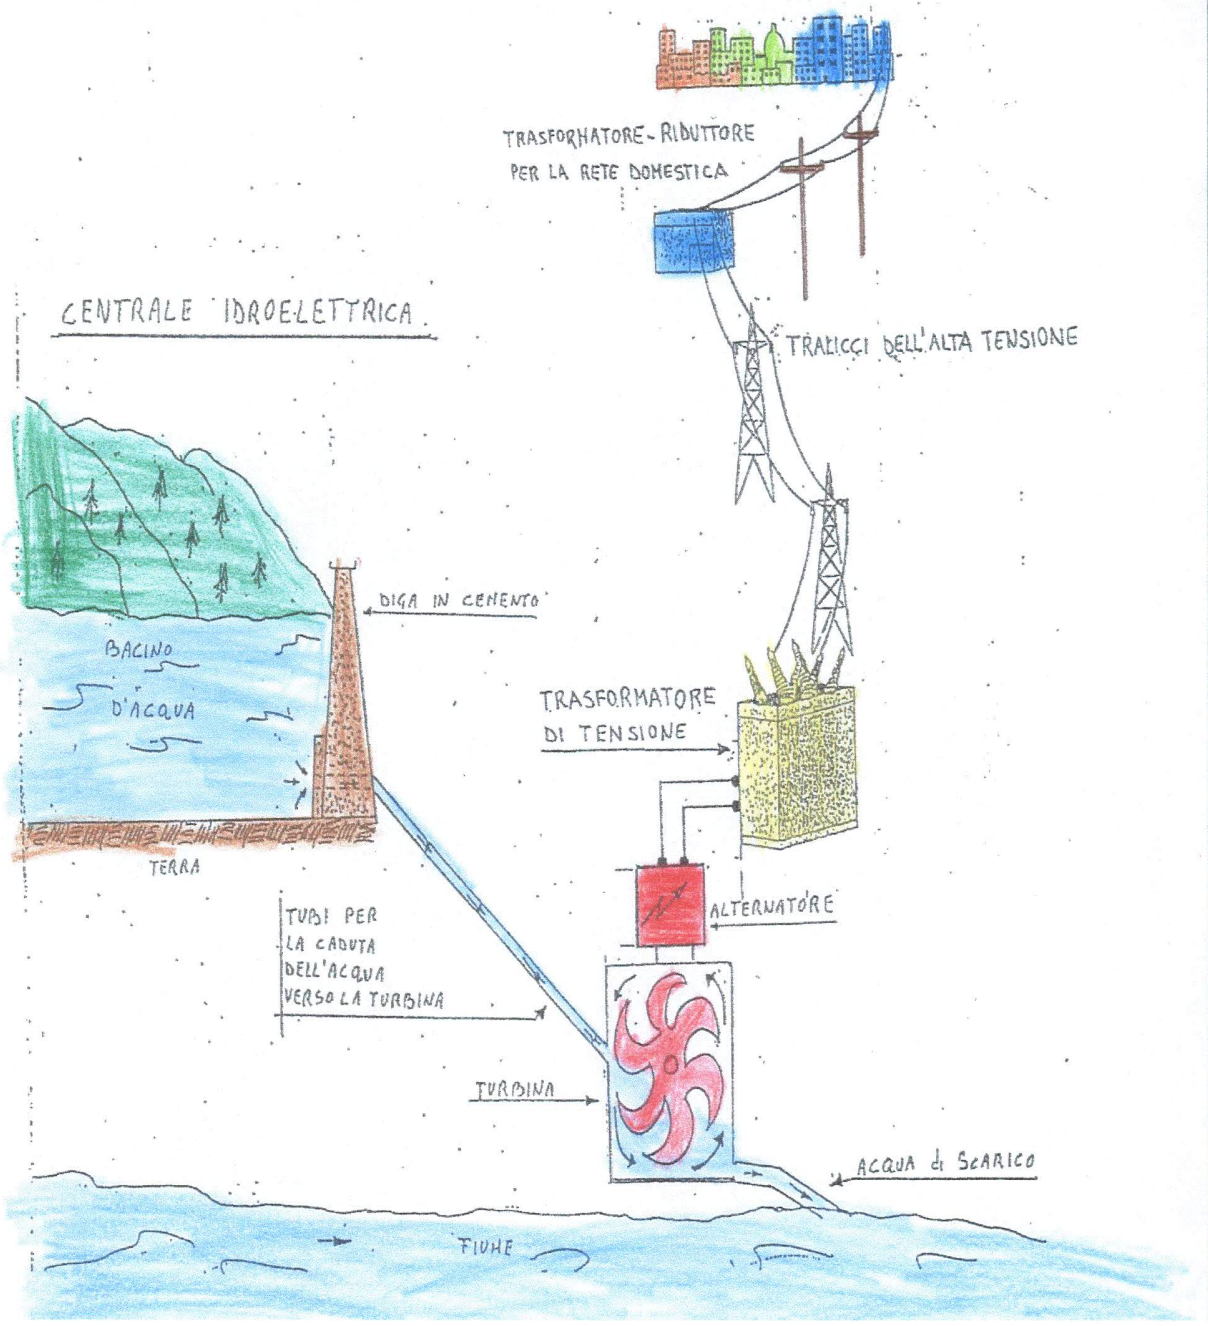 TRASFORMATORE-RIDUTTORE
PER LA RETE DOMESTICA
CENTRALE IDROELETTRICA
TRALICCI DELL'ALTA TENSIONE
DIGA IN CEMENTO
BACINO
D'ACQUA
TRASFORMATORE
DI TENSIONE
TERRA
ALTERNATORE
TUBI PER
LA CADUTA
DELL'ACQUA
VERSO LA TURBINA
TURBINA
ACQUA di SCARICO
FIUME